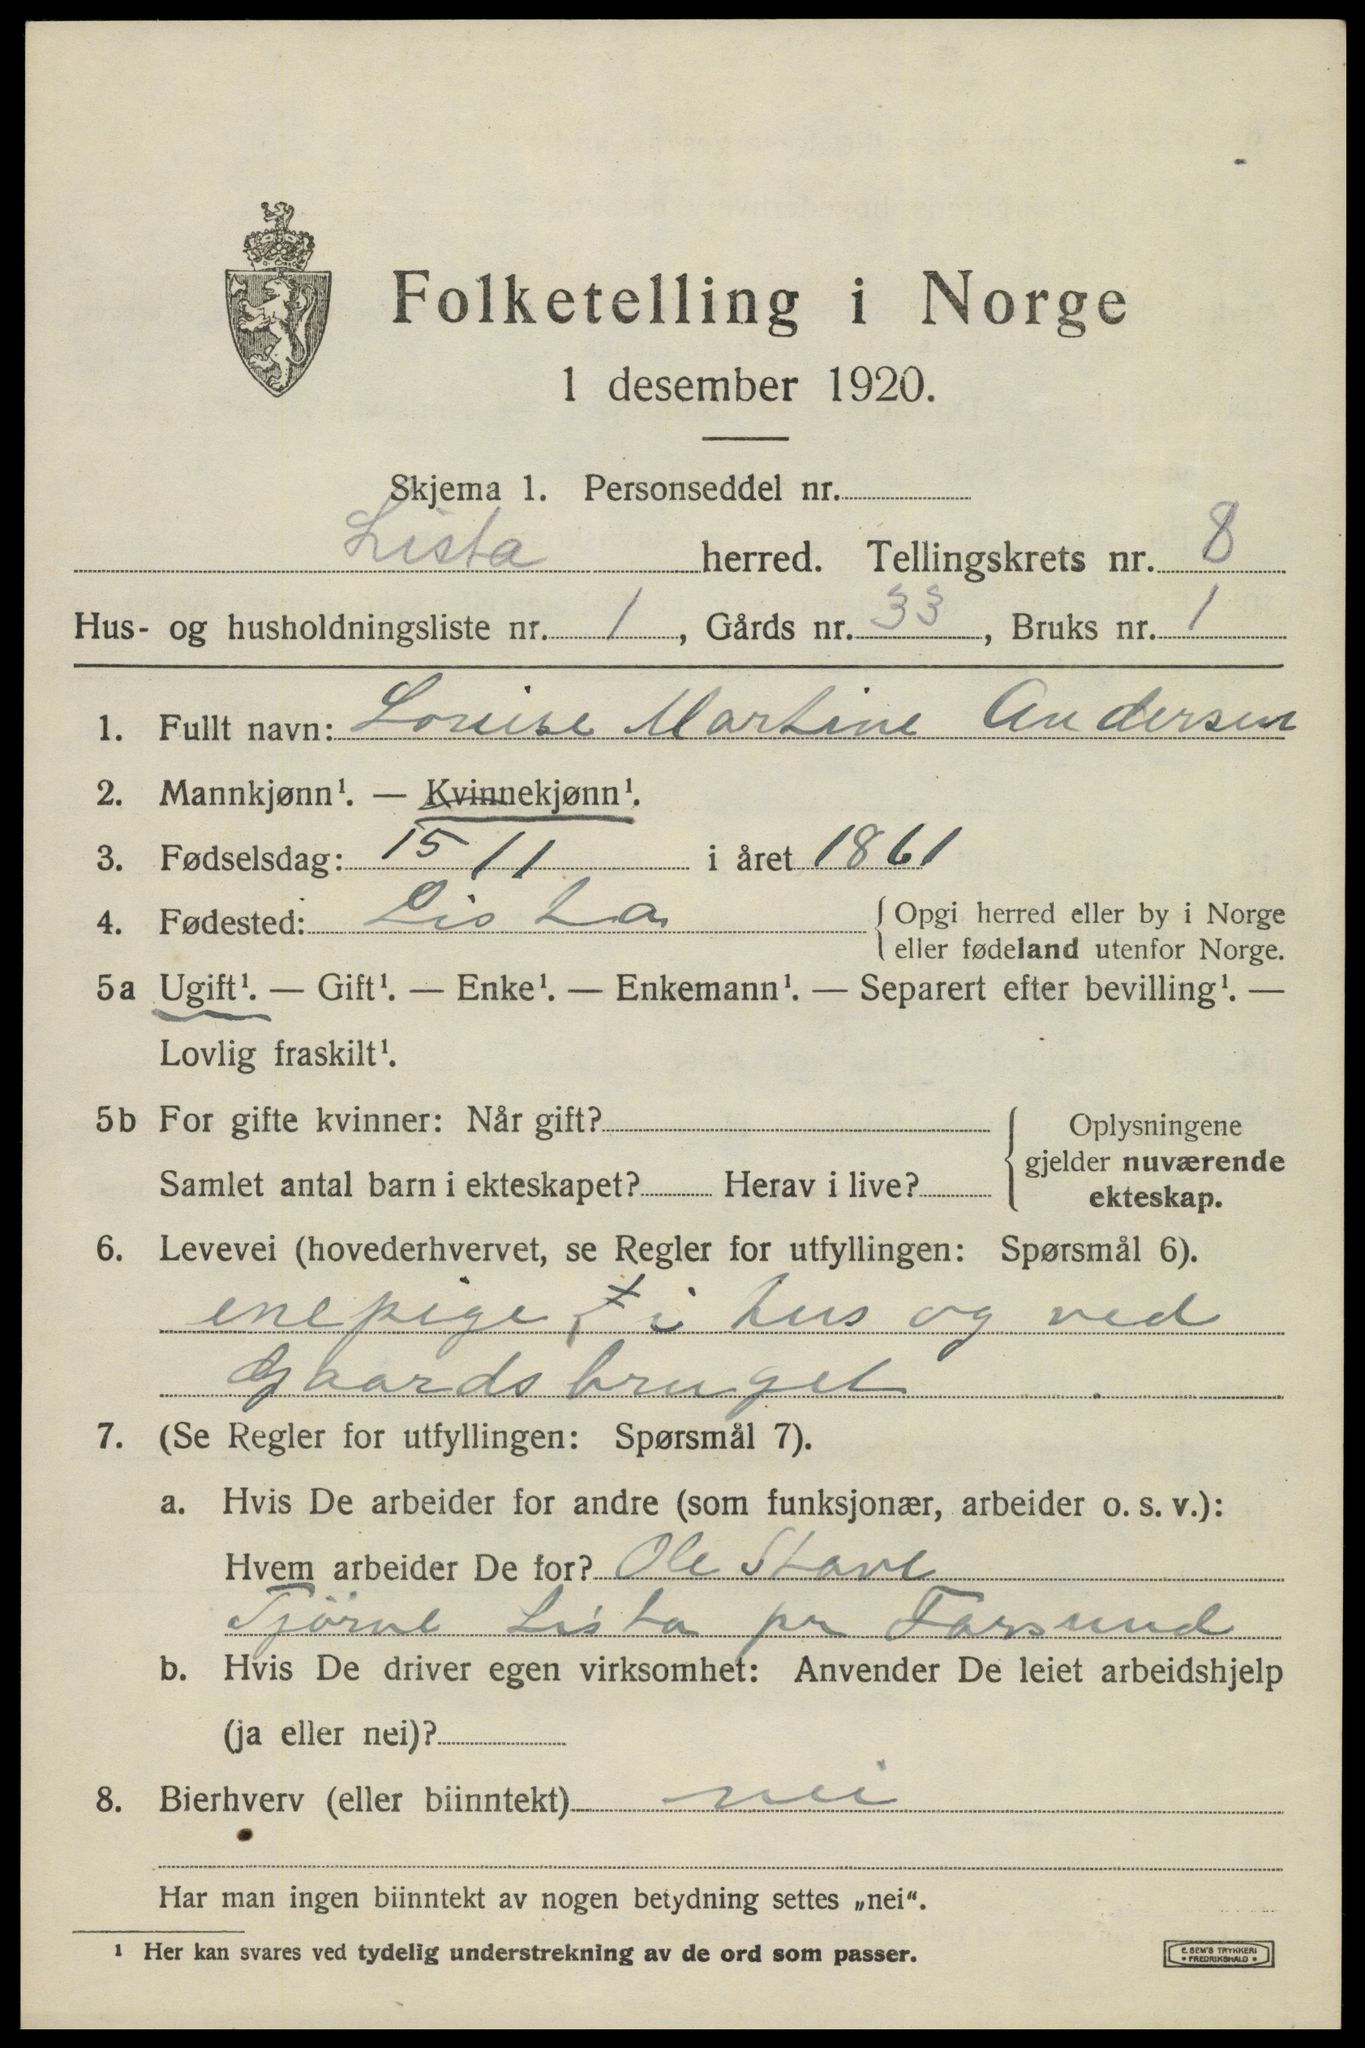 Folketelling i Norge
1 desember 1920.
Skjema 1. Personseddel nr.
Lista herred. Tellingskrets nr. 8
Hus- og husholdningsliste nr. 1, Gårds nr. 33, Bruks nr. 1
1. Fullt navn: Louise Martine Andersen
2. Mannkjønn¹. — Kvinnekjønn¹.
3. Fødselsdag: 15 11 i året 1861
4. Fødested: Lista {Opgi herred eller by i Norge
eller fødeland utenfor Norge.
5a Ugift¹. — Gift¹. — Enke¹. — Enkemann¹. — Separert efter bevilling¹. —
Lovlig fraskilt¹.
5b For gifte kvinner: Når gift? { Oplysningene
gjelder nuværende
Samlet antal barn i ekteskapet? Herav i live?
ekteskap.
6. Levevei (hovederhvervet, se Regler for utfyllingen: Spørsmål 6).
enepige, i hus og ved
Gaardsbruget
7. (Se Regler for utfyllingen: Spørsmål 7).
a. Hvis De arbeider for andre (som funksjonær, arbeider o. s. v.):
Hvem arbeider De for? Ole Stave
Tjörve Lista pr Farsund
b. Hvis De driver egen virksomhet: Anvender De leiet arbeidshjelp
(ja eller nei)?
8. Bierhverv (eller biinntekt) nei
Har man ingen biinntekt av nogen betydning settes „nei“.
¹ Her kan svares ved tydelig understrekning av de ord som passer.
E. SEM'S TRYKKERI
FREDRIKSHALD